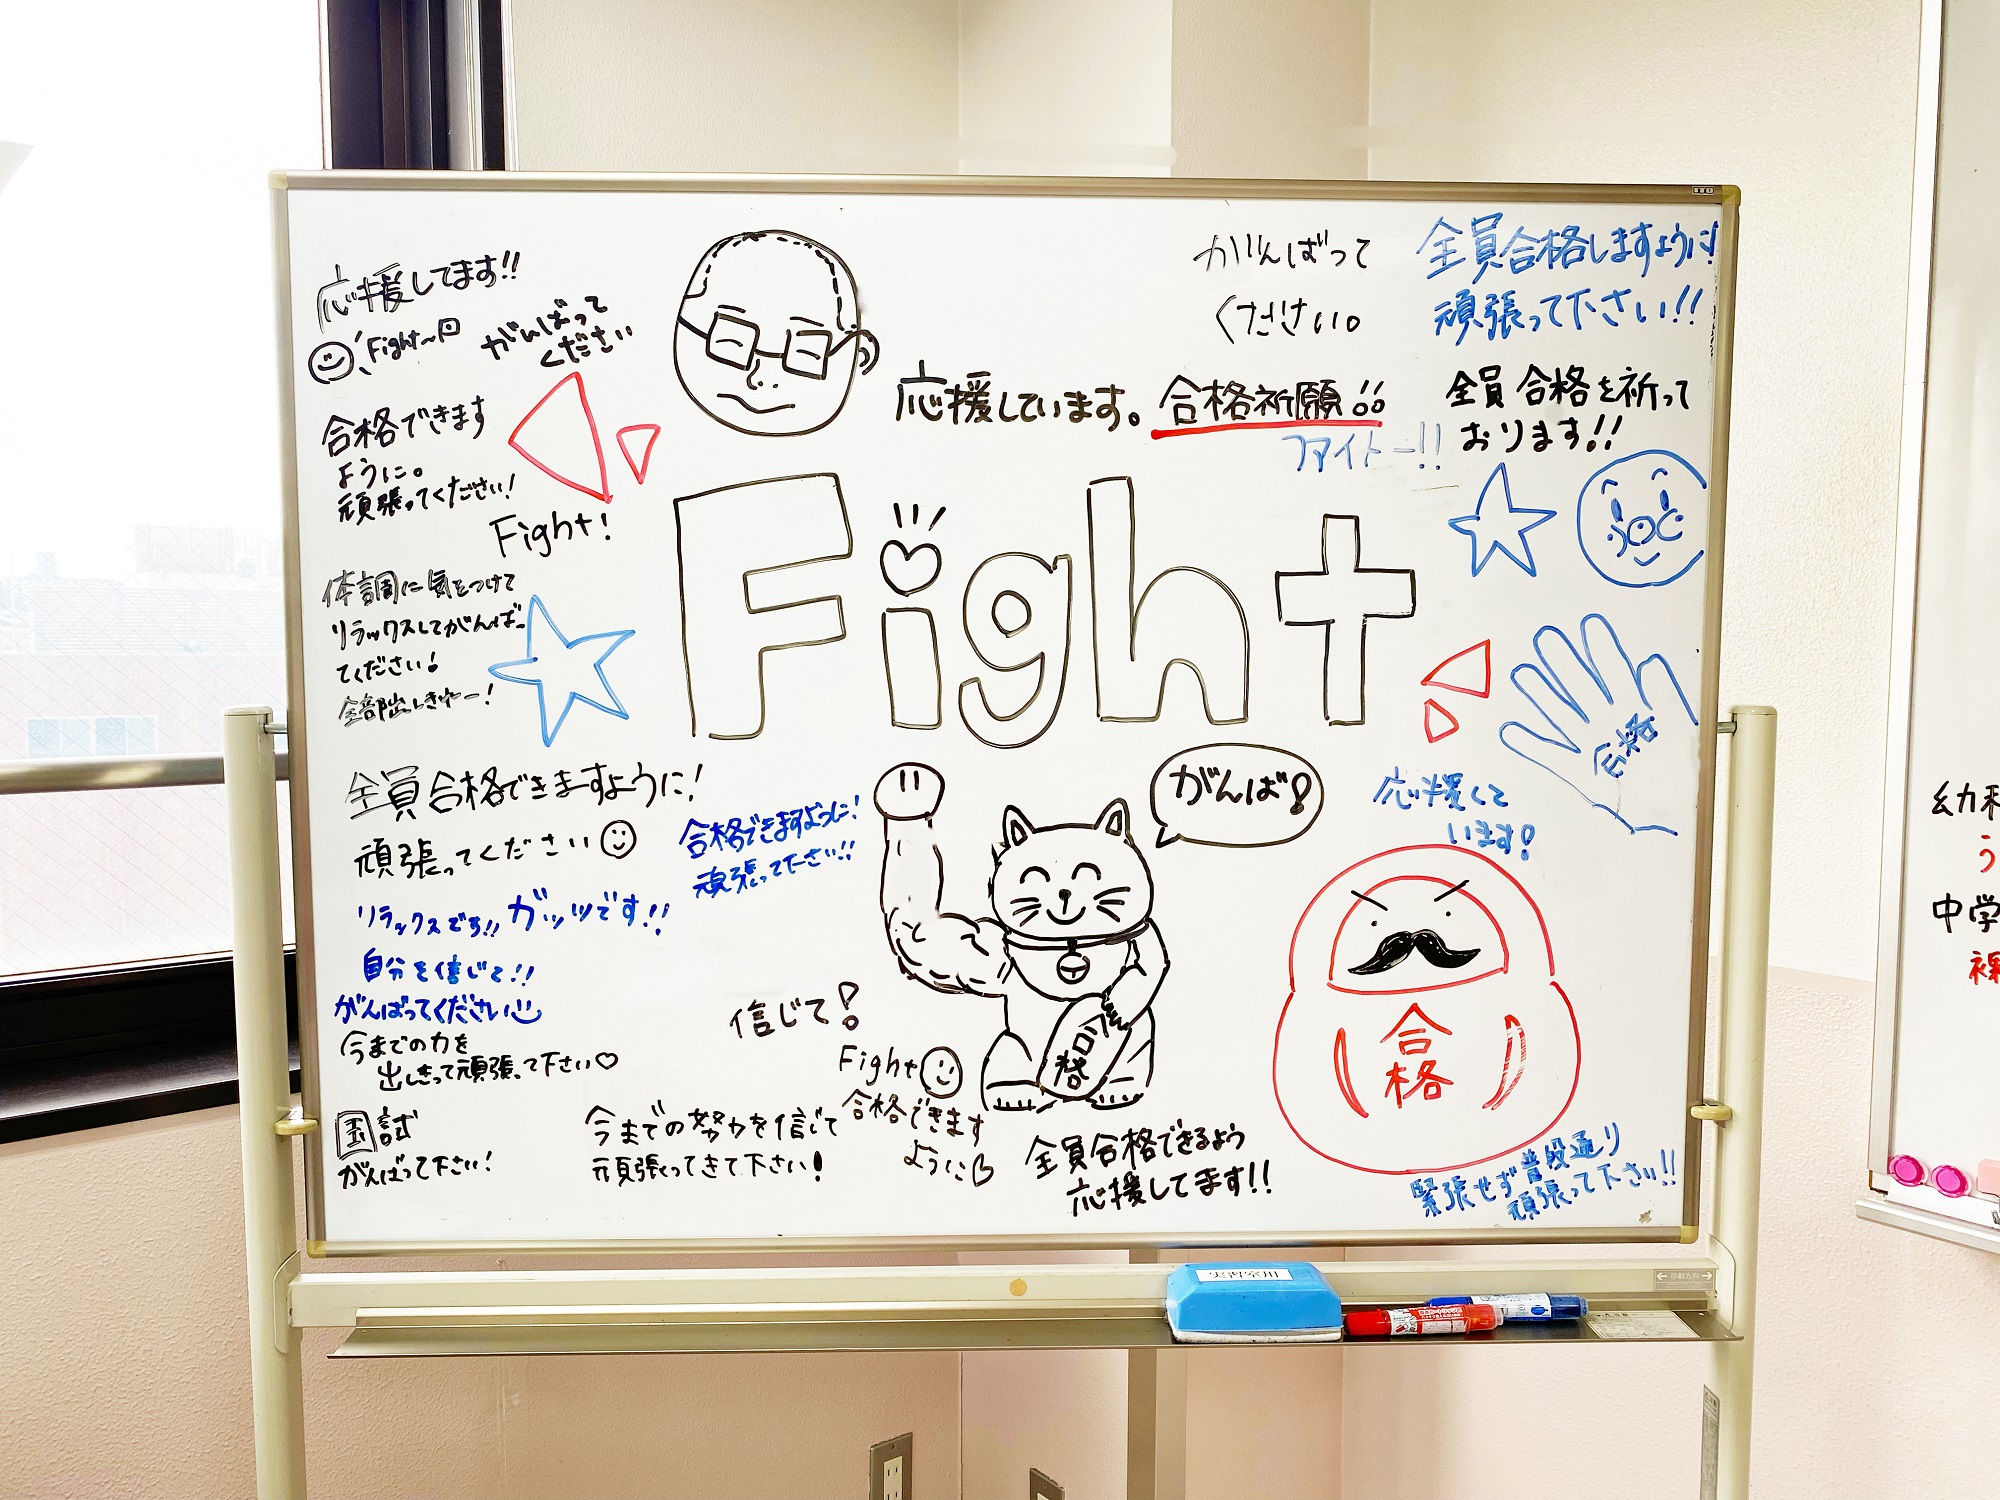 応援してます!!
Fight〜
がんばって
ください
合格できます
ように。
頑張ってください!
Fight!
体調に気をつけて
リラックスしてがんばっ
てください!
全部出しきれー!
全員合格できますように!
頑張ってください
合格できますように!
頑張って下さい!!
リラックスです!! ガッツです!!
自分を信じて!!
がんばってください
今までの力を
出しきって頑張って下さい♡
国試
がんばって下さい!
今までの努力を信じて
頑張ってきて下さい!
信じて!
Fight
合格できます
ように
応援しています。合格祈願!!
ファイトー!!
Fight
がんばって
ください。
全員合格しますように!
頑張って下さい!!
全員合格を祈って
おります!!
合格
がんば!
合格
応援して
います!
合格
全員合格できるよう
応援してます!!
緊張せず普段通り
頑張って下さい!!
実習室用
移動方向
幼稚
う
中学
裸